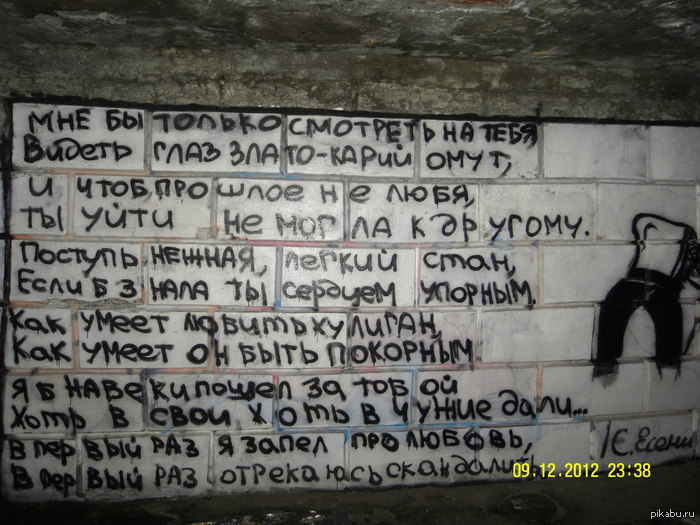 МНЕ БЫ ТОЛЬКО СМОТРЕТЬ НА ТЕБЯ
Видеть ГЛАЗ ЗЛАТО-КАРИЙ ОМУТ,
И ЧТОБ, ПРОШЛОЕ НЕ ЛЮБЯ,
ТЫ УЙТИ НЕ МОГЛА К ДРУГОМУ.
ПОСТУПЬ НЕЖНАЯ, ЛЕГКИЙ СТАН,
Если б ЗНАЛА ТЫ СЕРДЦЕМ УПОРНЫМ,
Как УМЕЕТ ЛЮБИТЬ ХУЛИГАН,
Как УМЕЕТ ОН БЫТЬ ПОКОРНЫМ
Я Б НАВЕКИ ПОШЕЛ ЗА ТОБОЙ
Хоть В СВОИ ХОТЬ В ЧУЖИЕ дали...
В ПЕРВЫЙ РАЗ Я ЗАПЕЛ ПРО ЛЮБОВЬ,
В ПЕРВЫЙ РАЗ ОТРЕКАЮСЬ СКАНДАЛИТЬ
/С. Есенин
09.12.2012 23:38
pikabu.ru